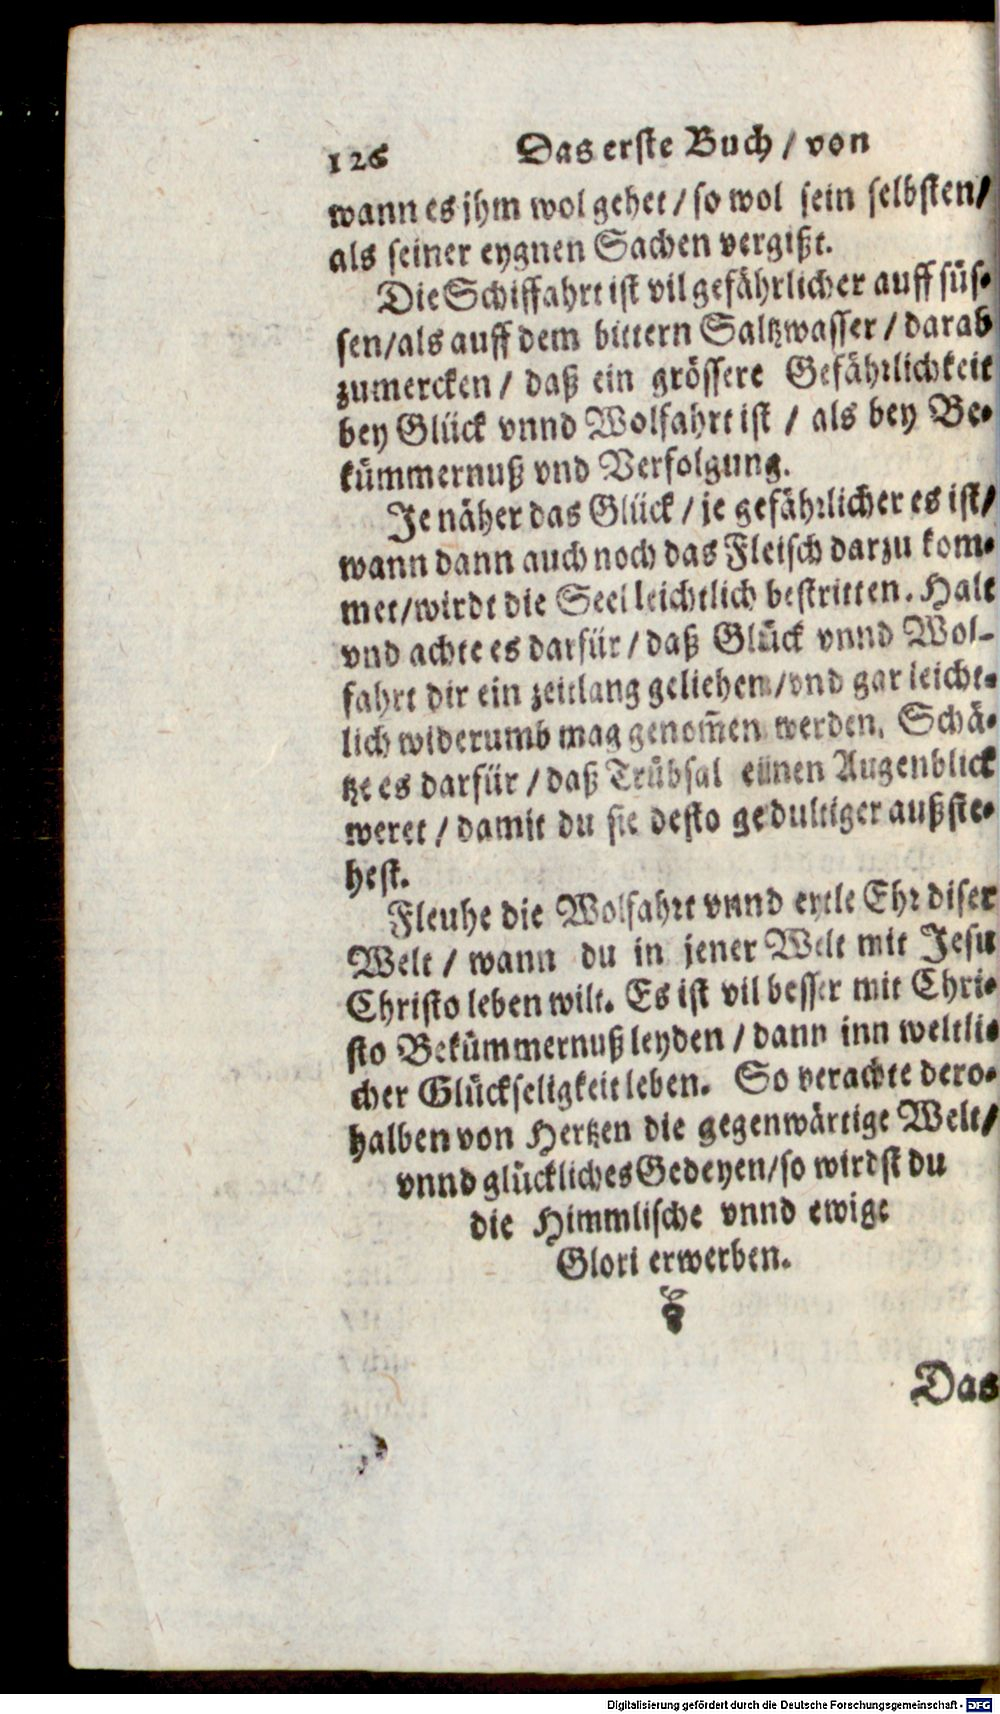 126 Das erste Buch / von
wann es jhm wol gehet / so wol sein selbsten /
als seiner eygnen Sachen vergißt.
Die Schiffahrt ist vil gefährlicher auff süs-
sen / als auff dem bittern Saltzwasser / darab
zumercken / daß ein grössere Gefährlichkeit
bey Glück vnnd Wolfahrt ist / als bey Be-
kümmernuß vnd Verfolgung.
Je näher das Glück / je gefährlicher es ist /
wann dann auch noch das Fleisch darzu kom-
met / wirdt die Seel leichtlich bestritten. Halt
vnd achte es darfür / daß Glück vnnd Wol-
fahrt dir ein zeitlang geliehen / vnd gar leicht-
lich widerumb mag genom̃en werden. Schä-
tze es darfür / daß Trübsal einen Augenblick
weret / damit du sie desto gedultiger außste-
hest.
Fleuhe die Wolfahrt vnnd eytle Ehr diser
Welt / wann du in jener Welt mit Jesu
Christo leben wilt. Es ist vil besser mit Chri-
sto Bekümmernuß leyden / dann inn weltli-
cher Glückseligkeit leben. So verachte dero-
halben von Hertzen die gegenwärtige Welt /
vnnd glückliches Gedeyen / so wirdst du
die Himmlische vnnd ewige
Glori erwerben.
Das
Digitalisierung gefördert durch die Deutsche Forschungsgemeinschaft - DFG